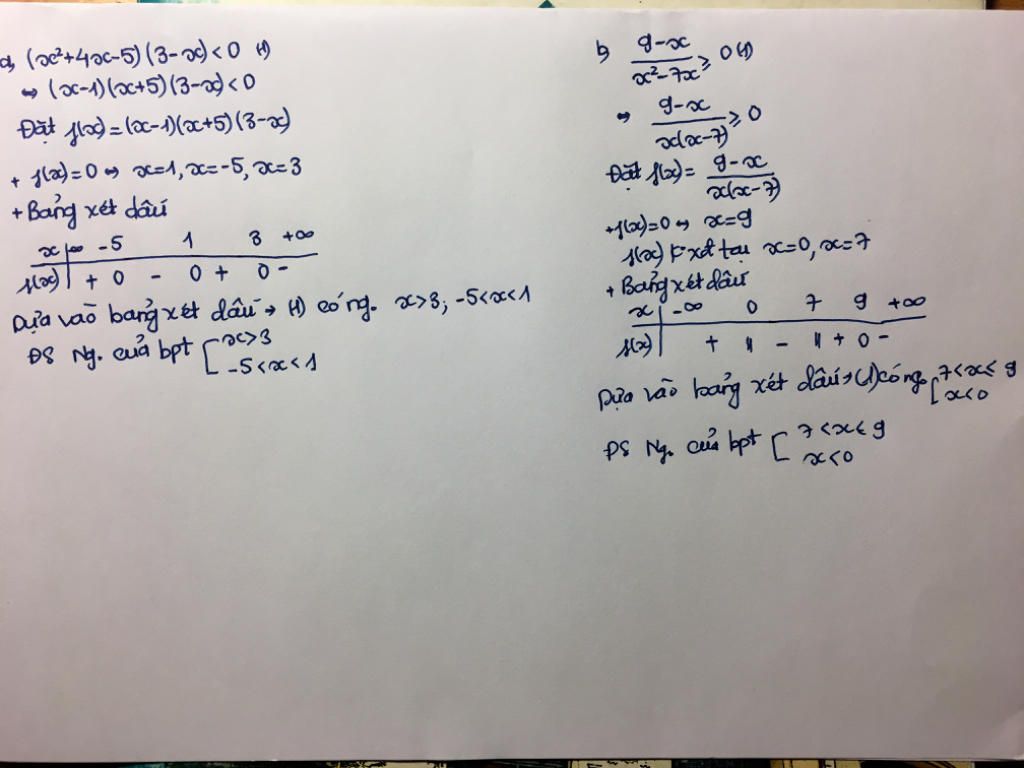 a, (x²+4x-5)(3-x)<0 (1)
⇔ (x-1)(x+5)(3-x)<0
Đặt f(x)=(x-1)(x+5)(3-x)
+ f(x)=0 ⇔ x=1, x=-5, x=3
+ Bảng xét dấu
x | -∞ -5 1 3 +∞
f(x) | + 0 - 0 + 0 -
Dựa vào bảng xét dấu → (1) có ng. x>3; -5<x<1
ĐS Ng. của bpt [ x>3
-5<x<1
b, (9-x)/(x²-7x) ≥ 0 (1)
⇔ (9-x)/(x(x-7)) ≥ 0
Đặt f(x)= (9-x)/(x(x-7))
+ f(x)=0 ⇔ x=9
f(x) k xđ tại x=0, x=7
+ Bảng xét dấu
x | -∞ 0 7 9 +∞
f(x) | + || - || + 0 -
Dựa vào bảng xét dấu → (1) có ng [ 7<x≤9
x<0
ĐS Ng. của bpt [ 7<x≤9
x<0